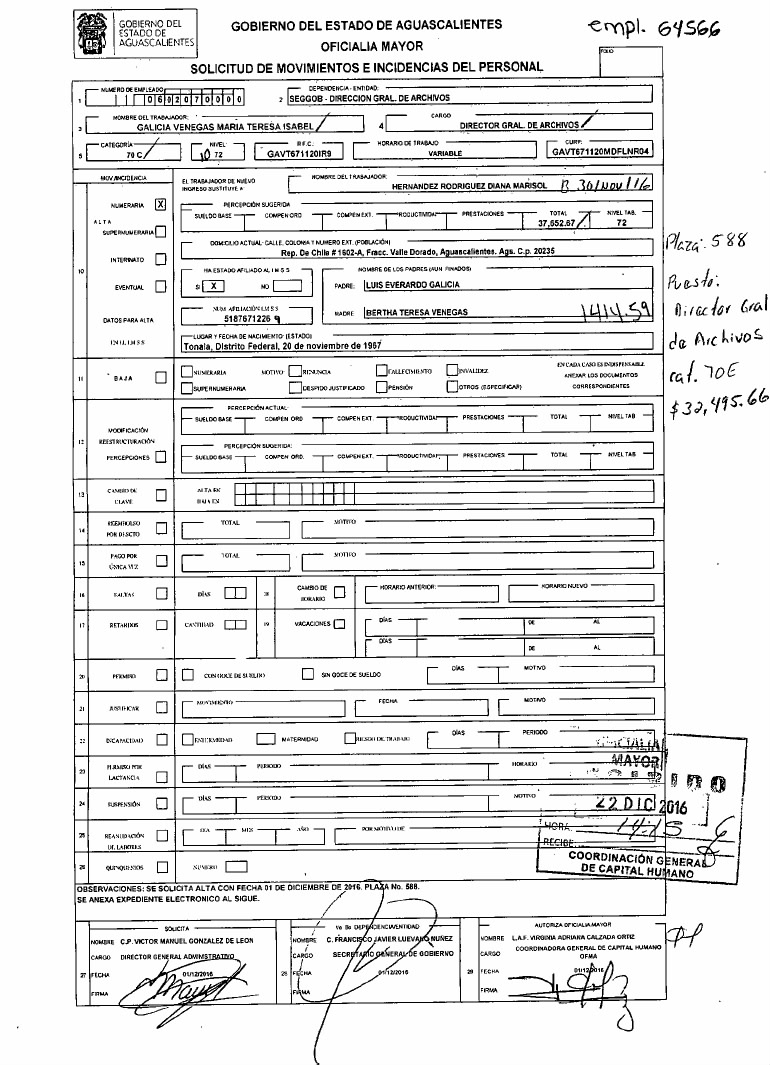 GOBIERNO DEL
ESTADO DE
AGUASCALIENTES
GOBIERNO DEL ESTADO DE AGUASCALIENTES
OFICIALIA MAYOR
SOLICITUD DE MOVIMIENTOS E INCIDENCIAS DEL PERSONAL
empl. 64566
FOLIO
1 NUMERO DE EMPLEADO 0602070000
2 DEPENDENCIA - ENTIDAD: SEGGOB - DIRECCION GRAL. DE ARCHIVOS
3 NOMBRE DEL TRABAJADOR: GALICIA VENEGAS MARIA TERESA ISABEL
4 CARGO DIRECTOR GRAL. DE ARCHIVOS
5 CATEGORÍA 70 C NIVEL: 72 R.F.C. GAVT671120IR9 HORARIO DE TRABAJO VARIABLE CURP: GAVT671120MDFLNR04
MOV/INCIDENCIA
EL TRABAJADOR DE NUEVO INGRESO SUSTITUYE A NOMBRE DEL TRABAJADOR: HERNANDEZ RODRIGUEZ DIANA MARISOL B 30/Nov/16
10
ALTA
NUMERARIA X
SUPERNUMERARIA
INTERINATO
EVENTUAL
DATOS PARA ALTA
EN EL I.M.S.S
PERCEPCIÓN SUGERIDA
SUELDO BASE COMPEN ORD COMPEN EXT. PRODUCTIVIDAD PRESTACIONES TOTAL NIVEL TAB.
37,652.67 72
DOMICILIO ACTUAL: CALLE, COLONIA Y NUMERO EXT. (POBLACIÓN)
Rep. De Chile # 1602-A, Fracc. Valle Dorado, Aguascalientes. Ags. C.p. 20235
HA ESTADO AFILIADO AL I M S S
SI X NO
NOMBRE DE LOS PADRES (AUN FINADOS)
PADRE: LUIS EVERARDO GALICIA
NUM AFILIACIÓN I.M S S
5187671226 9
MADRE BERTHA TERESA VENEGAS 1414.59
LUGAR Y FECHA DE NACIMIENTO (ESTADO)
Tonala, Distrito Federal, 20 de noviembre de 1967
Plaza: 588
Puesto:
Director Gral
de Archivos
cat. 70E
$32,495.66
11 BAJA NUMERARIA MOTIVO: RENUNCIA FALLECIMIENTO INVALIDEZ
SUPERNUMERARIA DESPIDO JUSTIFICADO PENSIÓN OTROS (ESPECIFICAR)
EN CADA CASO ES INDISPENSABLE
ANEXAR LOS DOCUMENTOS
CORRESPONDIENTES
12 MODIFICACIÓN
REESTRUCTURACIÓN
PERCEPCIONES
PERCEPCIÓN ACTUAL:
SUELDO BASE COMPEN ORD COMPEN EXT. PRODUCTIVIDAD PRESTACIONES TOTAL NIVEL TAB
PERCEPCIÓN SUGERIDA:
SUELDO BASE COMPEN ORD. COMPEN EXT. PRODUCTIVIDAD PRESTACIONES TOTAL NIVEL TAB
13 CAMBIO DE CLAVE ALTA EN
BAJA EN
14 REEMBOLSO POR DESCTO TOTAL MOTIVO
15 PAGO POR ÚNICA VEZ TOTAL MOTIVO
16 FALTAS DÍAS 18 CAMBIO DE HORARIO HORARIO ANTERIOR: HORARIO NUEVO
17 RETARDOS CANTIDAD 19 VACACIONES DÍAS DE AL
DÍAS DE AL
20 PERMISO CON GOCE DE SUELDO SIN GOCE DE SUELDO DÍAS MOTIVO
21 JUSTIFICAR MOVIMIENTO FECHA MOTIVO
22 INCAPACIDAD ENFERMEDAD MATERNIDAD RIESGO DE TRABAJO DÍAS PERIODO
23 PERMISO POR LACTANCIA DÍAS PERIODO HORARIO
24 SUSPENSIÓN DÍAS PERIODO MOTIVO
25 REANUDACIÓN DE LABORES DIA MES AÑO POR MOTIVO DE
26 QUINQUENIOS NUMERO
OFICIALIA
MAYOR
22 DIC 2016
HORA: 14:15
RECIBE:
COORDINACIÓN GENERAL
DE CAPITAL HUMANO
OBSERVACIONES: SE SOLICITA ALTA CON FECHA 01 DE DICIEMBRE DE 2016. PLAZA No. 588.
SE ANEXA EXPEDIENTE ELECTRONICO AL SIGUE.
SOLICITA
NOMBRE C.P. VICTOR MANUEL GONZALEZ DE LEON
CARGO DIRECTOR GENERAL ADMINISTRATIVO
27 FECHA 01/12/2016
FIRMA
Vo Bo DEPENDENCIA/ENTIDAD
NOMBRE C. FRANCISCO JAVIER LUEVANO NUÑEZ
CARGO SECRETARIO GENERAL DE GOBIERNO
28 FECHA 01/12/2016
FIRMA
AUTORIZA OFICIALIA MAYOR
NOMBRE L.A.F. VIRGINIA ADRIANA CALZADA ORTIZ
CARGO COORDINADORA GENERAL DE CAPITAL HUMANO OFMA
29 FECHA 01/12/2016
FIRMA